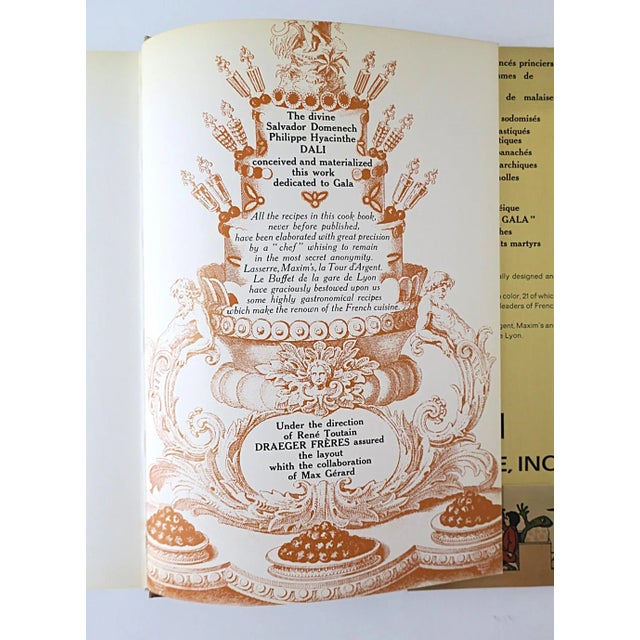 The divine
Salvador Domenech
Philippe Hyacinthe
DALI
conceived and materialized
this work
dedicated to Gala
All the recipes in this cook book,
never before published,
have been elaborated with great precision
by a "chef" whising to remain
in the most secret anonymity.
Lasserre, Maxim's, la Tour d'Argent.
Le Buffet de la gare de Lyon
have graciously bestowed upon us
some highly gastronomical recipes
which make the renown of the French cuisine.
Under the direction
of René Toutain
DRAEGER FRÈRES assured
the layout
whith the collaboration
of Max Gérard
ncés princiers
mes de
de malaise
sodomisés
astiqués
tiques
panachés
archiques
nolles
éique
GALA"
hes
ts martyrs
ally designed and
color, 21 of which
leaders of French
rgent, Maxim's and
e Lyon.
E, INC